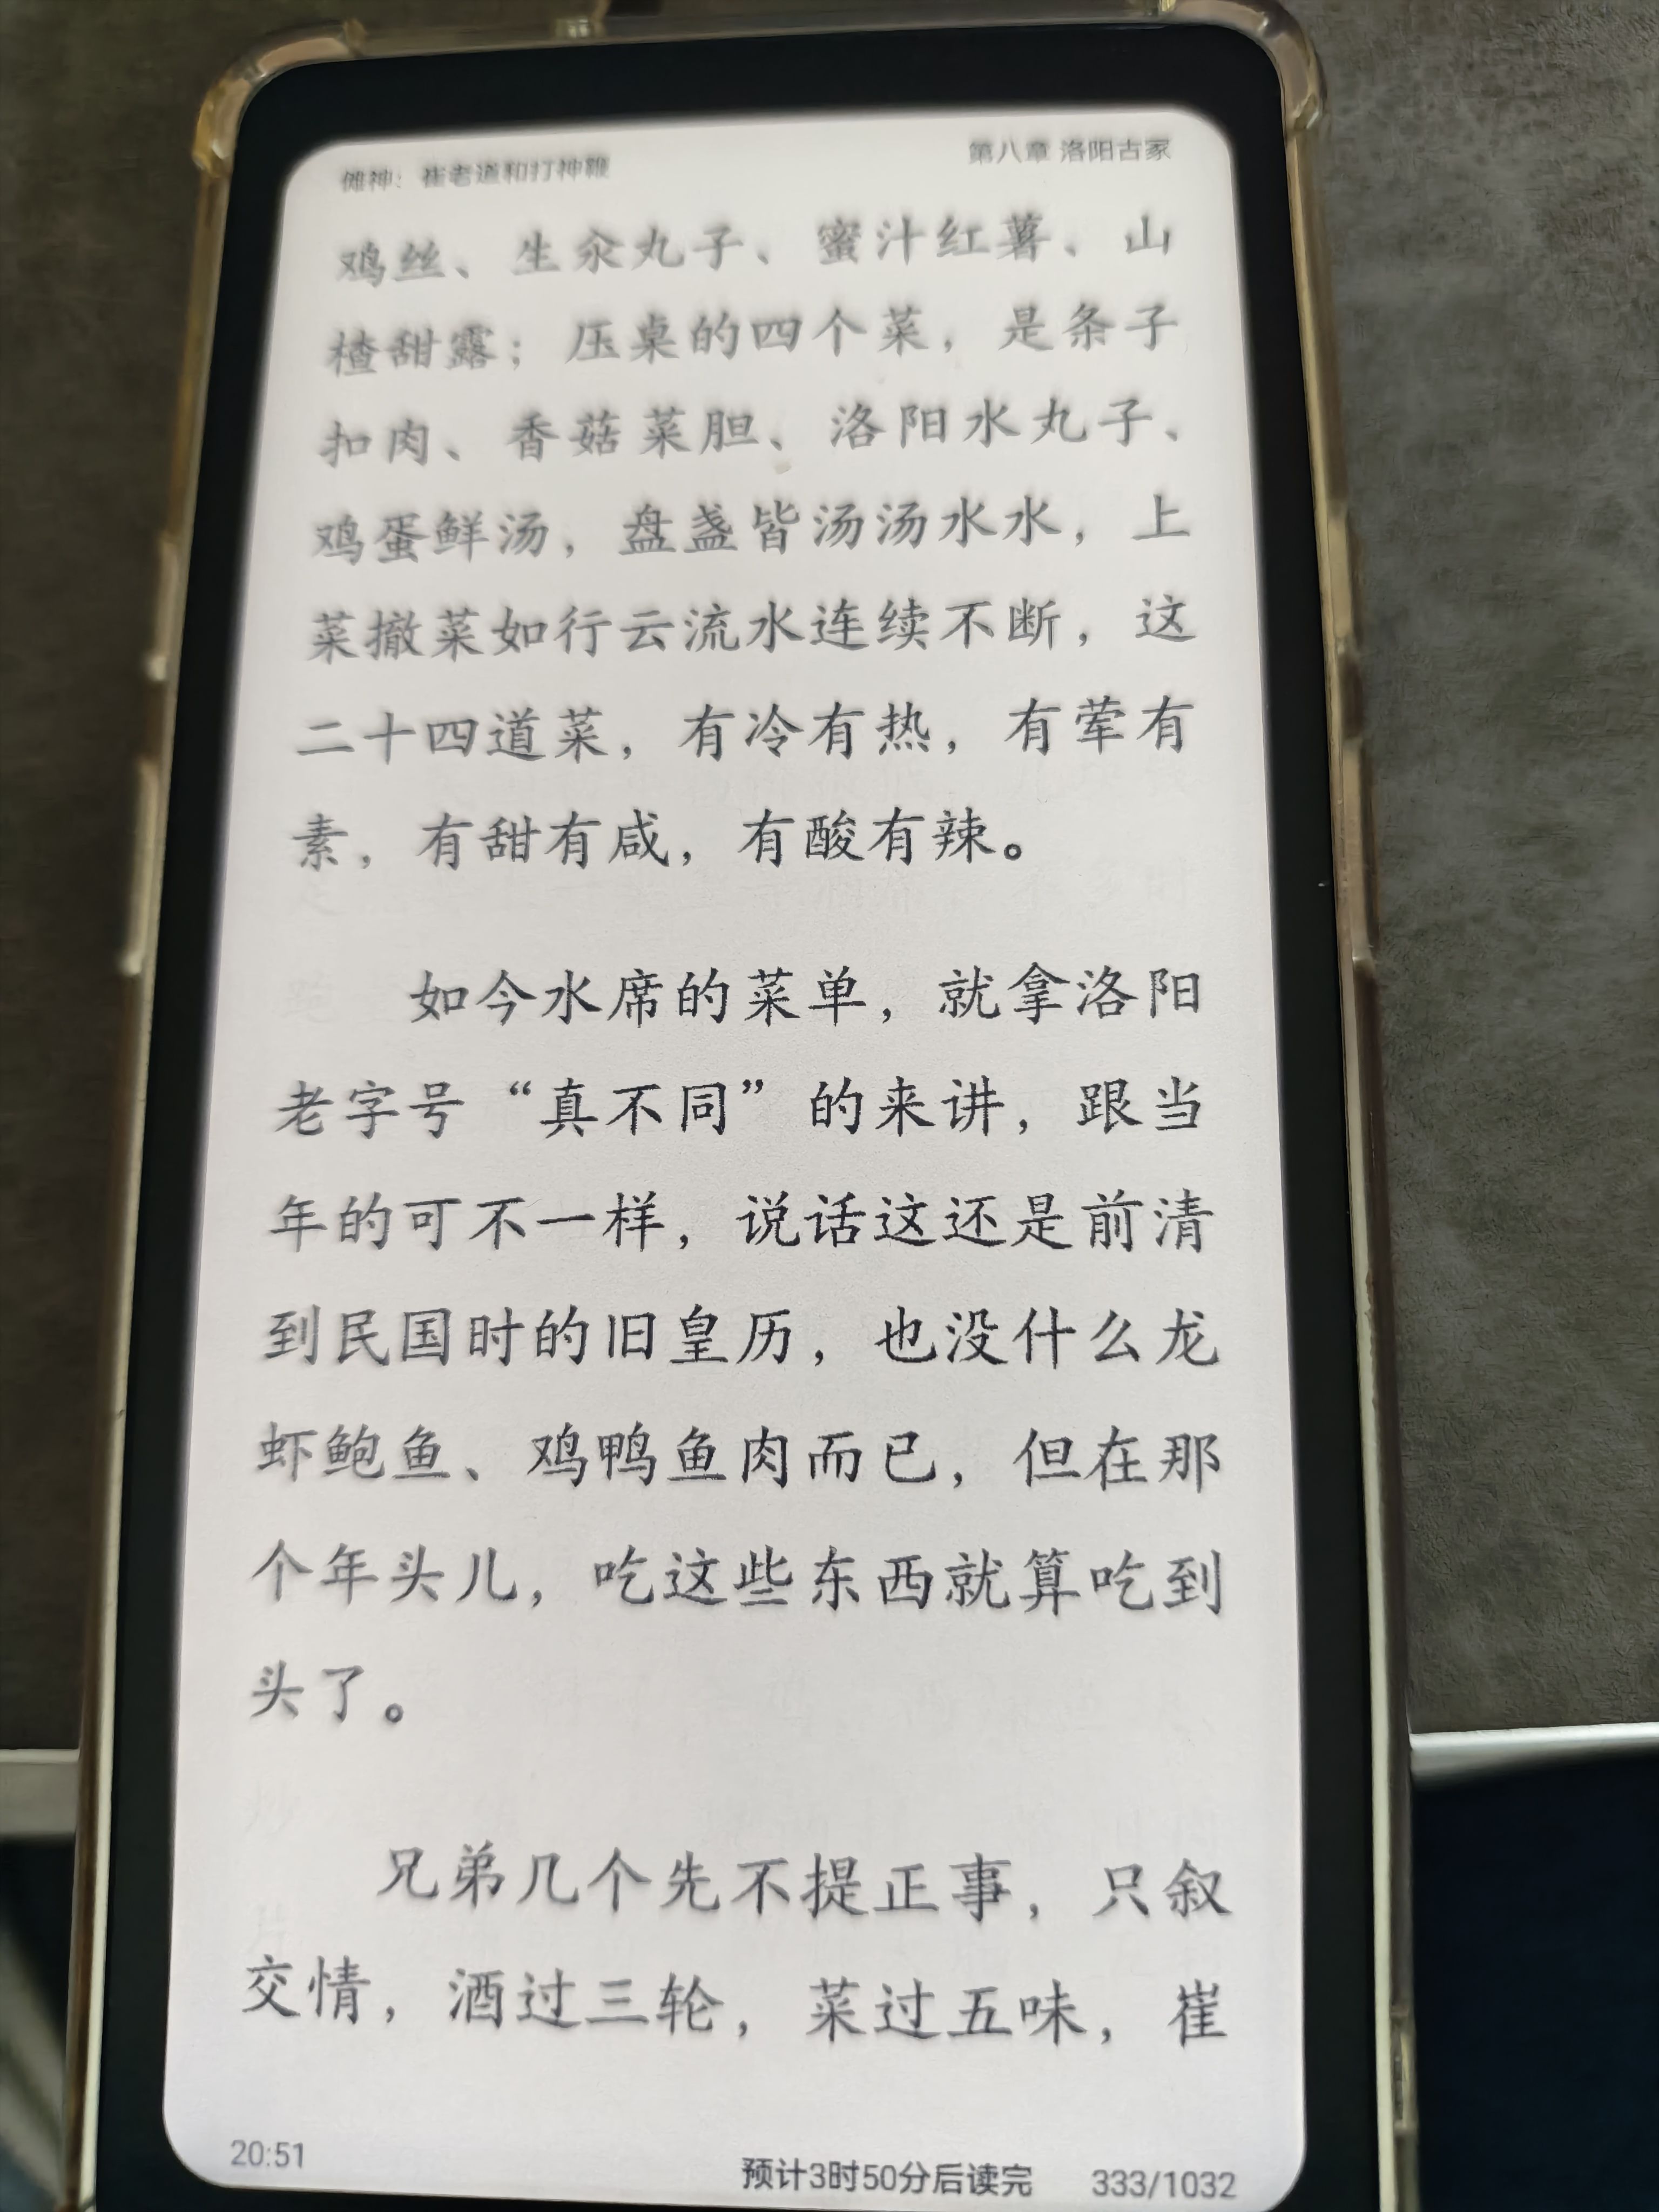 傩神：崔老道和打神鞭
第八章 洛阳古冢
鸡丝、生汆丸子、蜜汁红薯、山
楂甜露；压桌的四个菜，是条子
扣肉、香菇菜胆、洛阳水丸子、
鸡蛋鲜汤，盘盏皆汤汤水水，上
菜撤菜如行云流水连续不断，这
二十四道菜，有冷有热，有荤有
素，有甜有咸，有酸有辣。
如今水席的菜单，就拿洛阳
老字号“真不同”的来讲，跟当
年的可不一样，说话这还是前清
到民国时的旧皇历，也没什么龙
虾鲍鱼、鸡鸭鱼肉而已，但在那
个年头儿，吃这些东西就算吃到
头了。
兄弟几个先不提正事，只叙
交情，酒过三轮，菜过五味，崔
20:51
预计3时50分后读完
333/1032